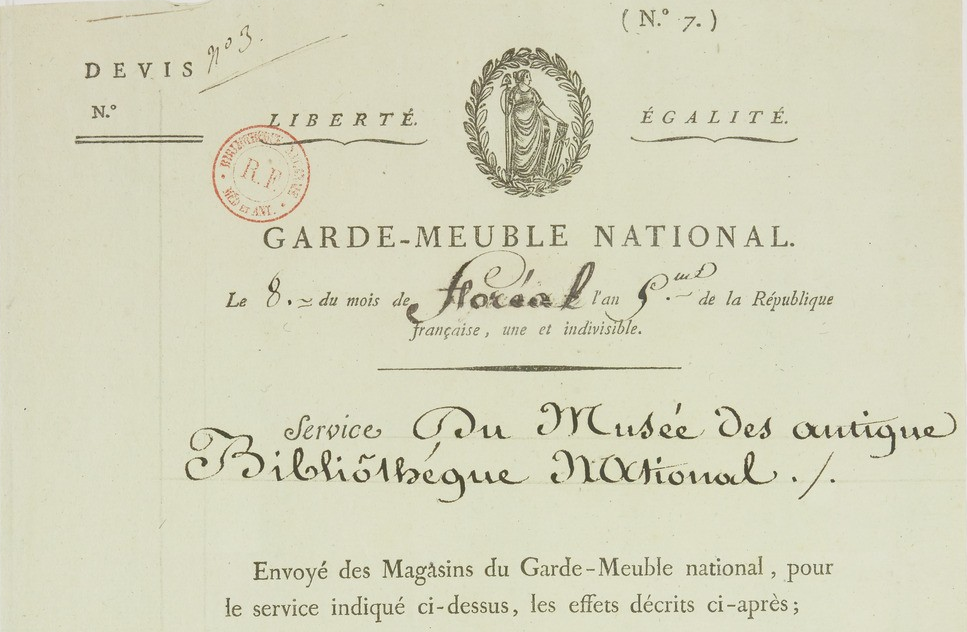 ( N.° 7. )
DEVIS n° 3.
N.°
LIBERTÉ. ÉGALITÉ.
BIBLIOTHÈQUE NATIONALE
R.F.
MÉD. ET ANT.
GARDE-MEUBLE NATIONAL.
Le 8. du mois de floréal l'an 5.me de la République
française, une et indivisible.
Service Du Musée Des antique
Bibliôthéque NAtional ./.
Envoyé des Magasins du Garde-Meuble national, pour
le service indiqué ci-dessus, les effets décrits ci-après ;